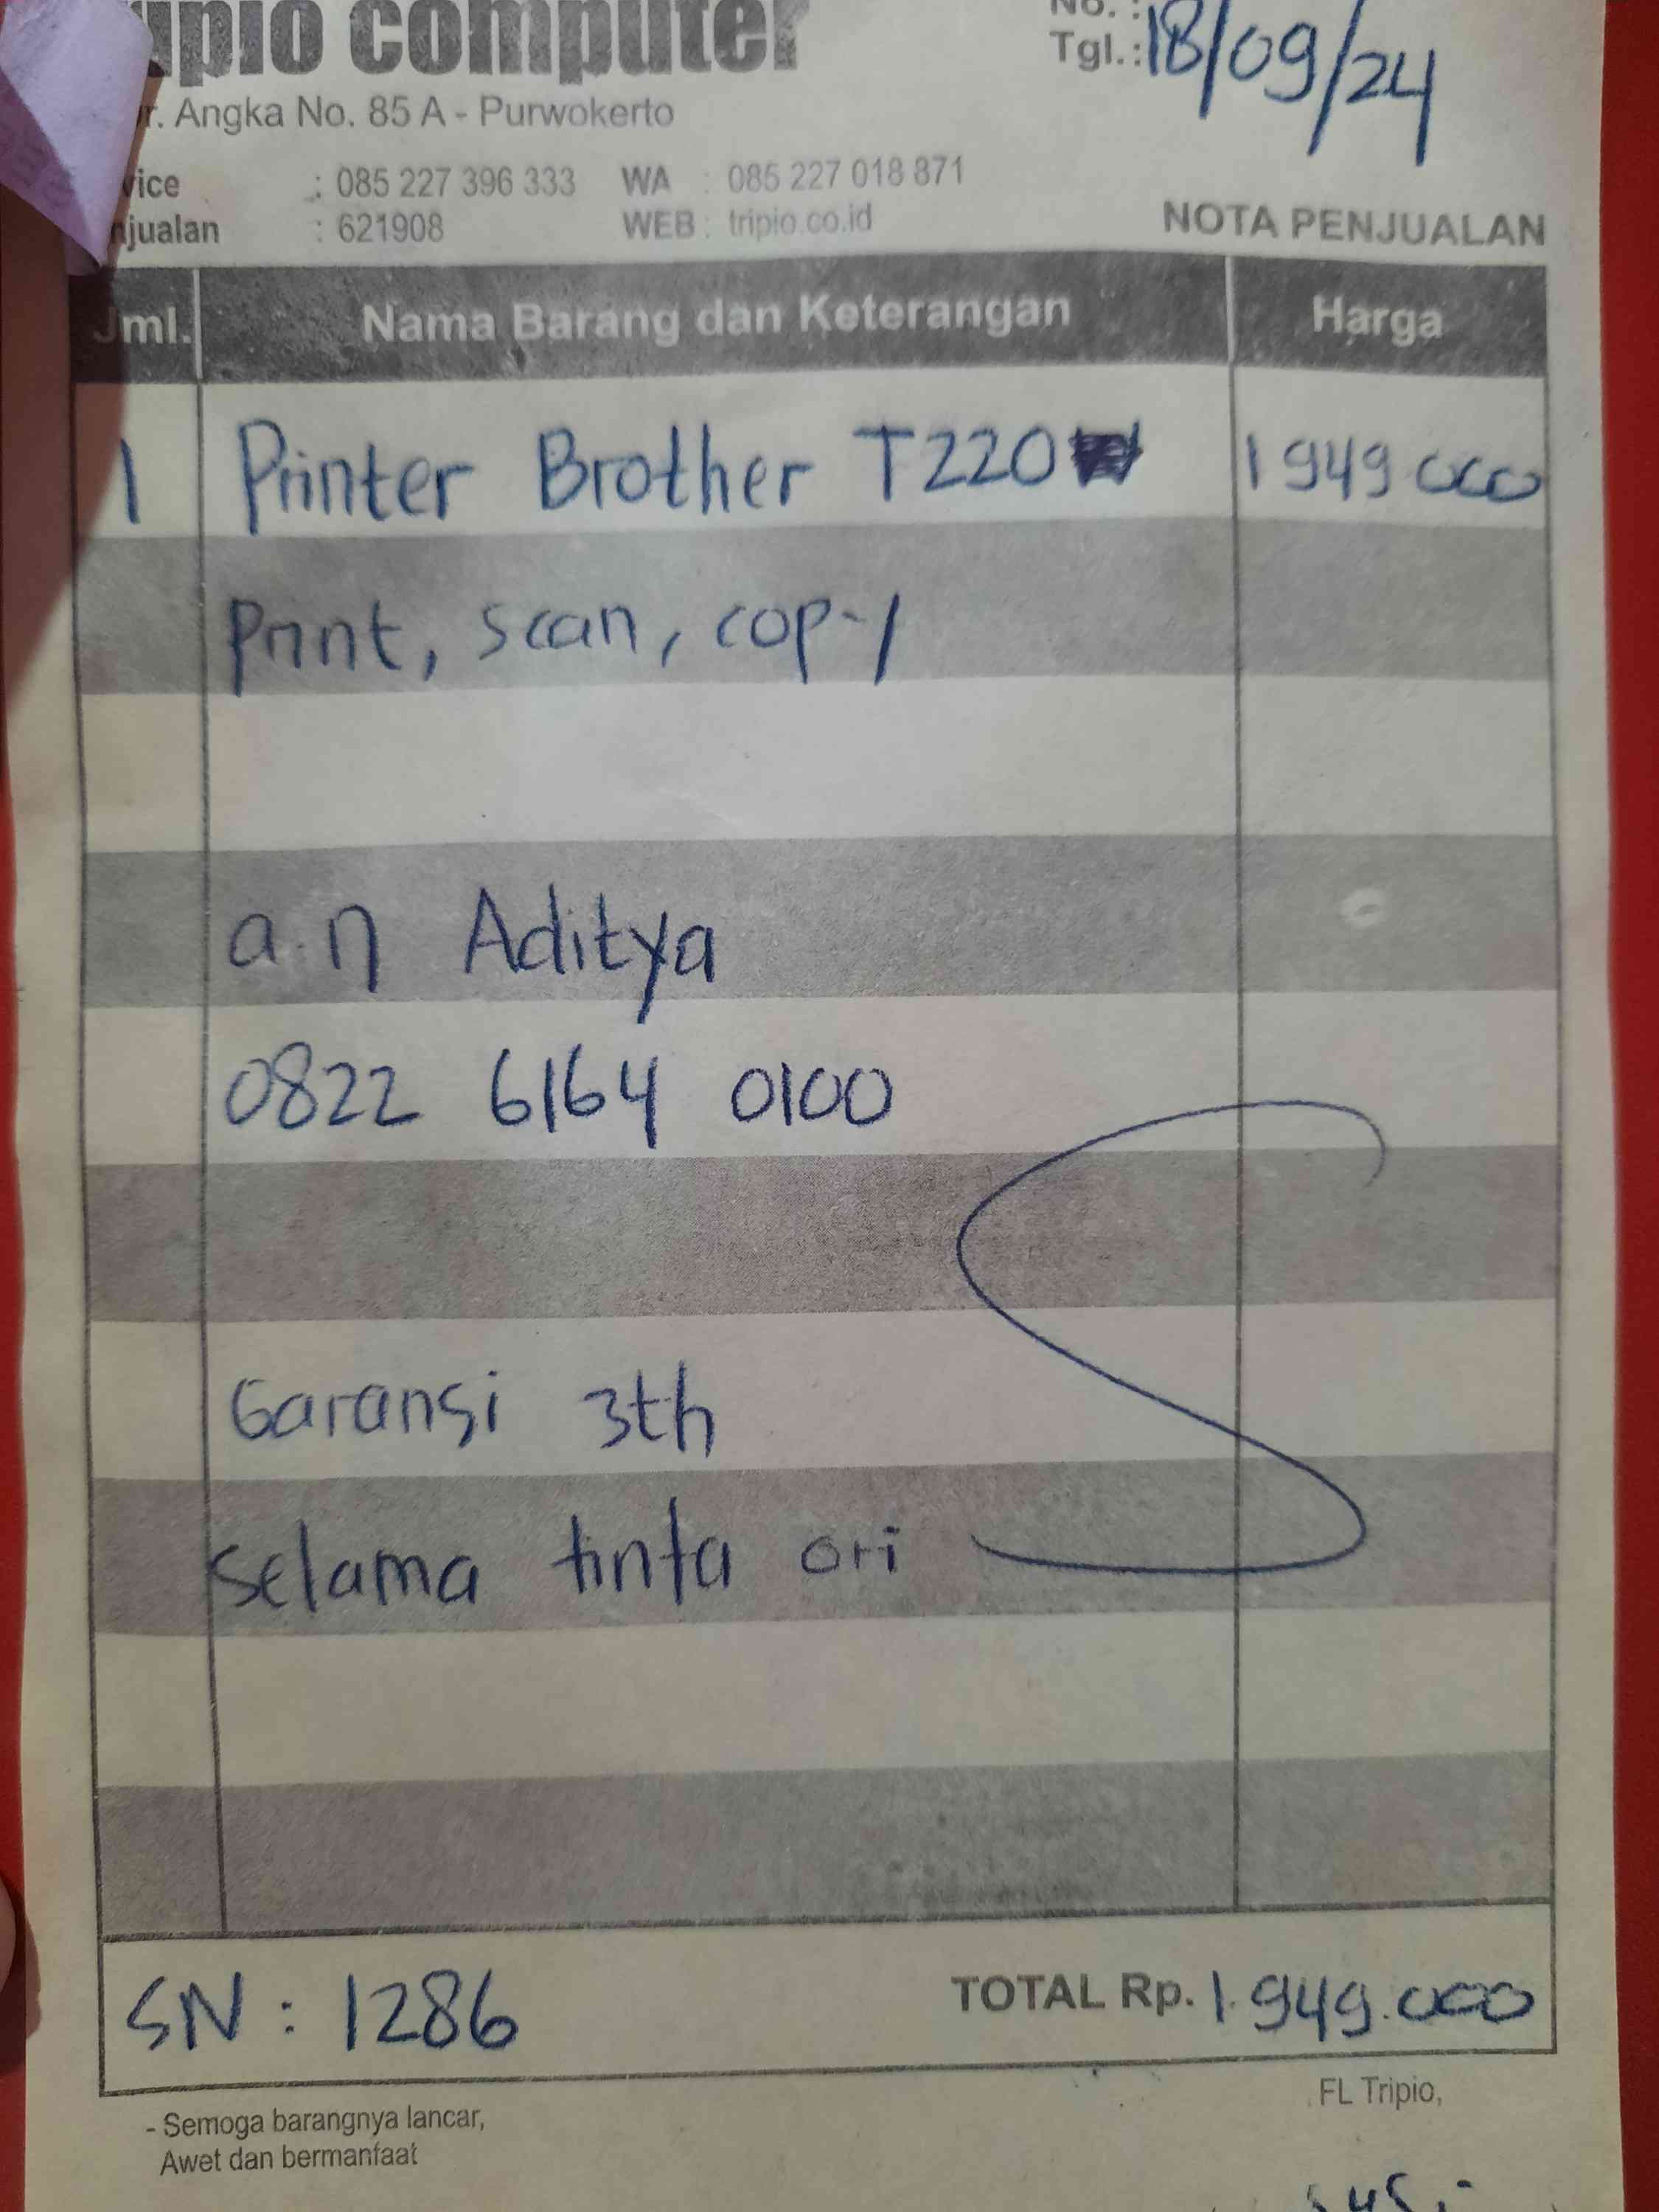 computer
No. :
Tgl.: 18/09/24
Angka No. 85 A - Purwokerto
: 085 227 396 333 WA : 085 227 018 871
: 621908 WEB : tripio.co.id
NOTA PENJUALAN
Jml. Nama Barang dan Keterangan Harga
1 Printer Brother T220 1 949 000
Print, scan, copy
a.n Aditya
0822 6164 0100
Garansi 3th
selama tinta ori
SN : 1286 TOTAL Rp. 1.949.000
FL Tripio,
- Semoga barangnya lancar,
Awet dan bermanfaat